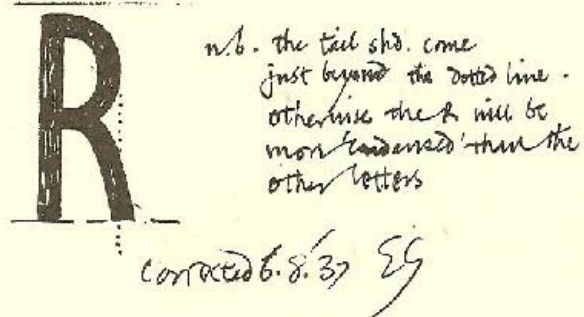 R
n.b. the tail shd. come
just beyond the dotted line.
otherwise the R will be
more 'condensed' than the
other letters
corrected 6.8.37 EG